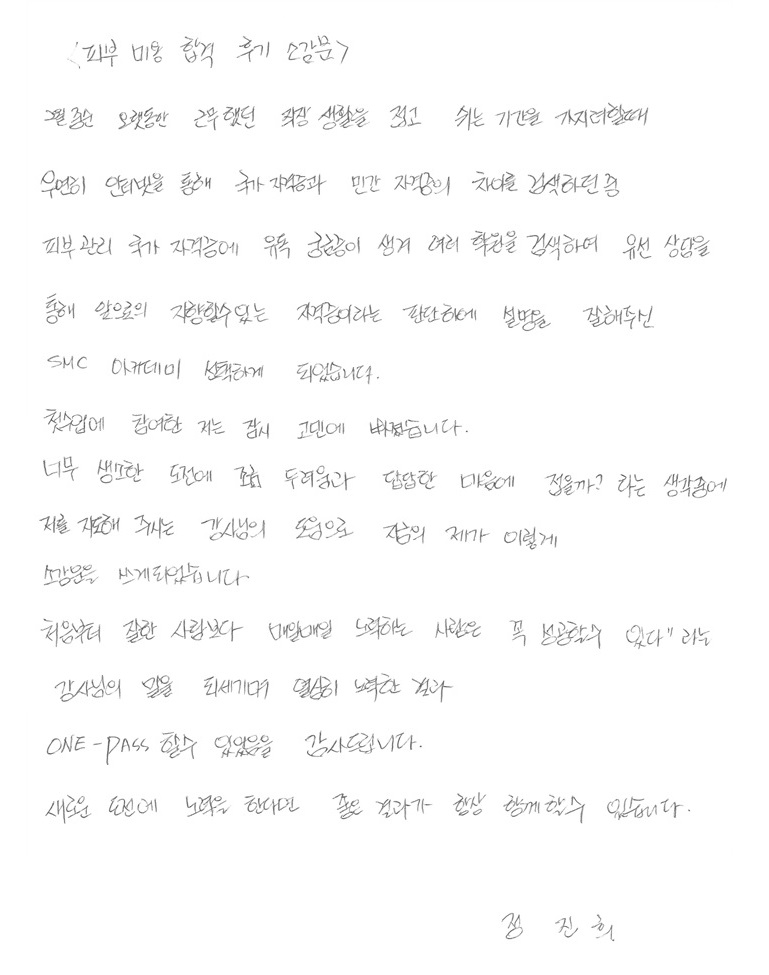 <피부 미용 합격 후기 소감문>
오랫동안 근무했던 직장 생활을 접고 쉬는 기간을 가지려할때
우연히 인터넷을 통해 국가 자격증과 민간 자격증의 차이를 검색하던 중
피부관리 국가 자격증에 유독 궁금증이 생겨 여러 학원을 검색하여 유선 상담을
통해 앞으로의 지향할수있는 자격증이라는 판단하에 설명을 잘해주신
SMC 아카데미 선택하게 되었습니다.
첫수업에 참여한 저는 잠시 고민에 빠졌습니다.
너무 생소한 도전에 두려움과 답답한 마음에 접을까? 라는 생각중에
저를 지도해 주시는 강사님의 도움으로 지금의 제가 이렇게
소감문을 쓰게되었습니다
처음부터 잘한 사람보다 매일매일 노력하는 사람은 꼭 성공할수 있다" 라는
강사님의 말을 되세기며 열심히 노력한 결과
ONE-PASS 할수 있었음을 감사드립니다.
새로운 도전에 노력을 한다면 좋은 결과가 항상 함께할수 있습니다.
정 진 희